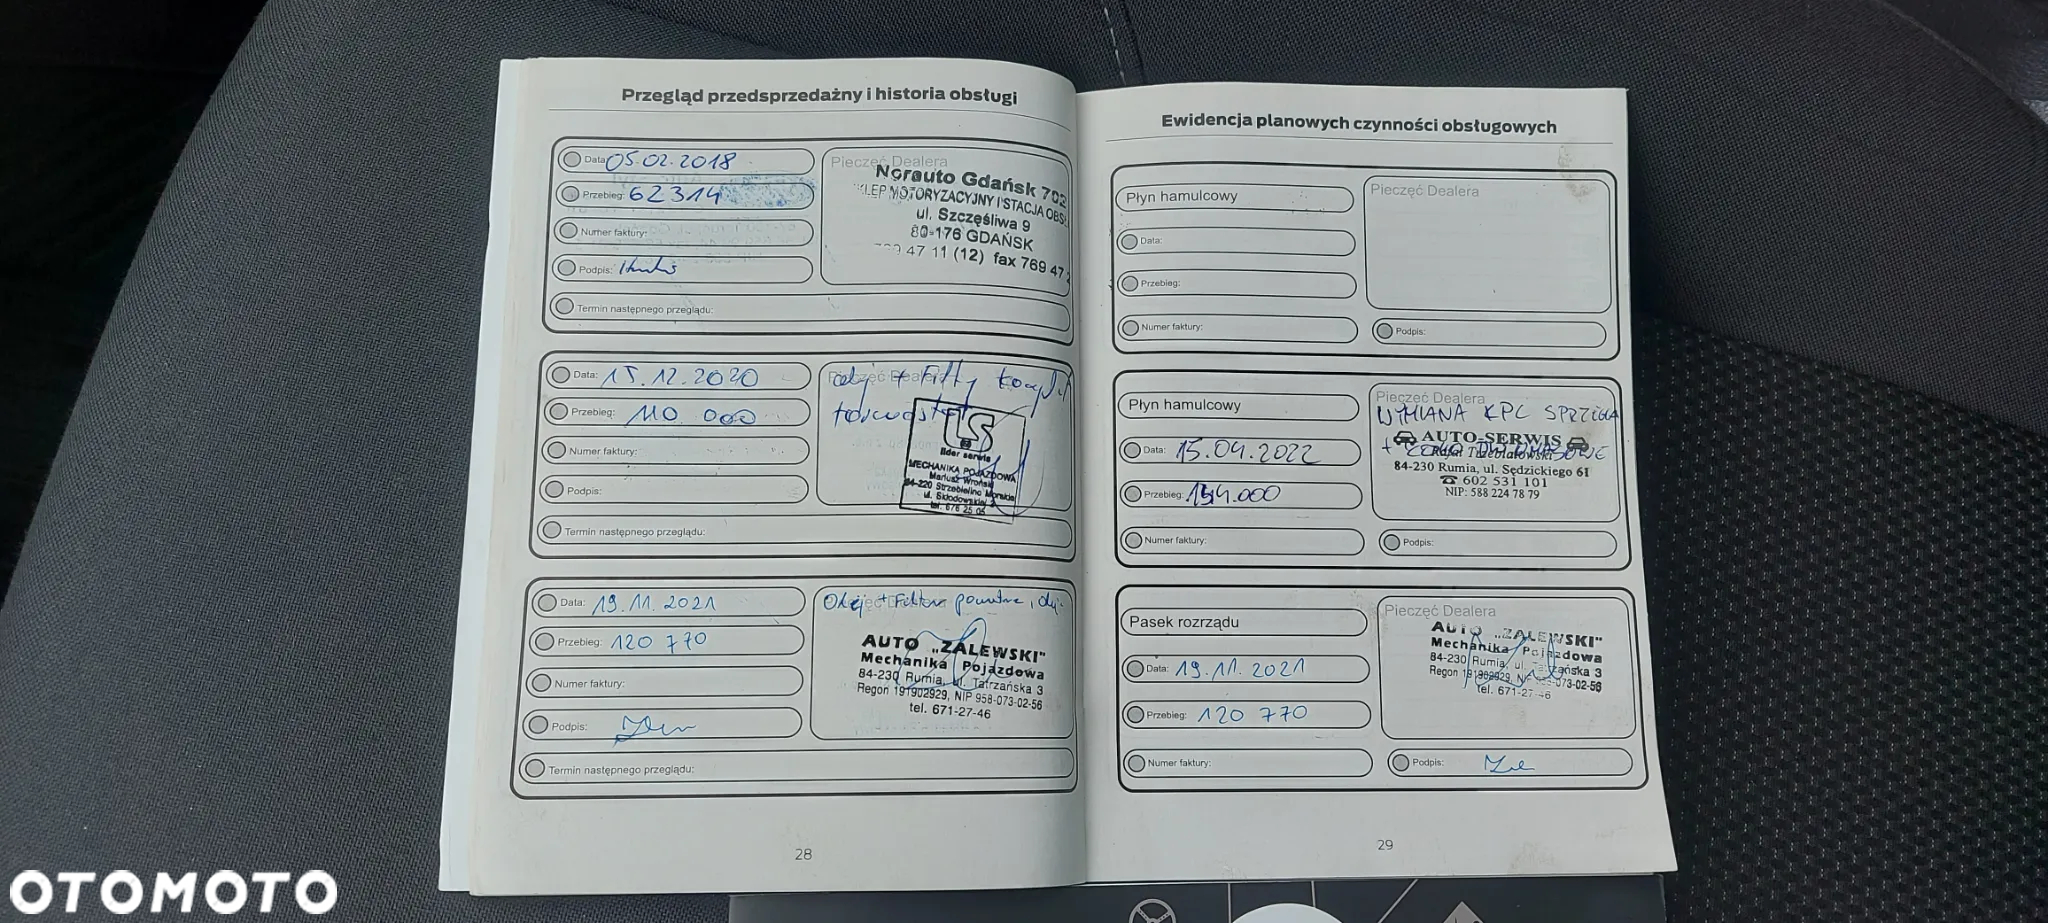 Przegląd przedsprzedażny i historia obsługi
Data: 05.02.2018
Przebieg: 62314
Numer faktury:
Podpis:
Termin następnego przeglądu:
Pieczęć Dealera
Norauto Gdańsk 702
SKLEP MOTORYZACYJNY I STACJA OBSŁ
ul. Szczęśliwa 9
80-176 GDAŃSK
47 11 (12) fax 769 47
Data: 15.12.2020
Przebieg: 110 000
Numer faktury:
Podpis:
Termin następnego przeglądu:
Pieczęć Dealera
olej + Filtry
LS
lider serwis
MECHANIKA POJAZDOWA
Mariusz Wroński
84-220 Strzebielino Morskie
ul. Skłodowskiej
tel. 676 25 05
Data: 19.11.2021
Przebieg: 120 770
Numer faktury:
Podpis:
Termin następnego przeglądu:
Pieczęć Dealera
Olej + Filtr powietrza, olej
AUTO „ZALEWSKI"
Mechanika Pojazdowa
84-230 Rumia, ul. Tatrzańska 3
Regon 191902929, NIP 958-073-02-56
tel. 671-27-46
28
Ewidencja planowych czynności obsługowych
Płyn hamulcowy
Data:
Przebieg:
Numer faktury:
Pieczęć Dealera
Podpis:
Płyn hamulcowy
Data: 15.04.2022
Przebieg: 134.000
Numer faktury:
Pieczęć Dealera
WYMIANA KPL SPRZĘGŁA
+ KOŁO DWUMASOWE
AUTO-SERWIS
Rafał Trzebiatowski
84-230 Rumia, ul. Sędzickiego 61
☎ 602 531 101
NIP: 588 224 78 79
Podpis:
Pasek rozrządu
Data: 19.11.2021
Przebieg: 120 770
Numer faktury:
Pieczęć Dealera
AUTO „ZALEWSKI"
Mechanika Pojazdowa
84-230 Rumia, ul. Tatrzańska 3
Regon 191902929, NIP 958-073-02-56
tel. 671-27-46
Podpis:
29
OTOMOTO